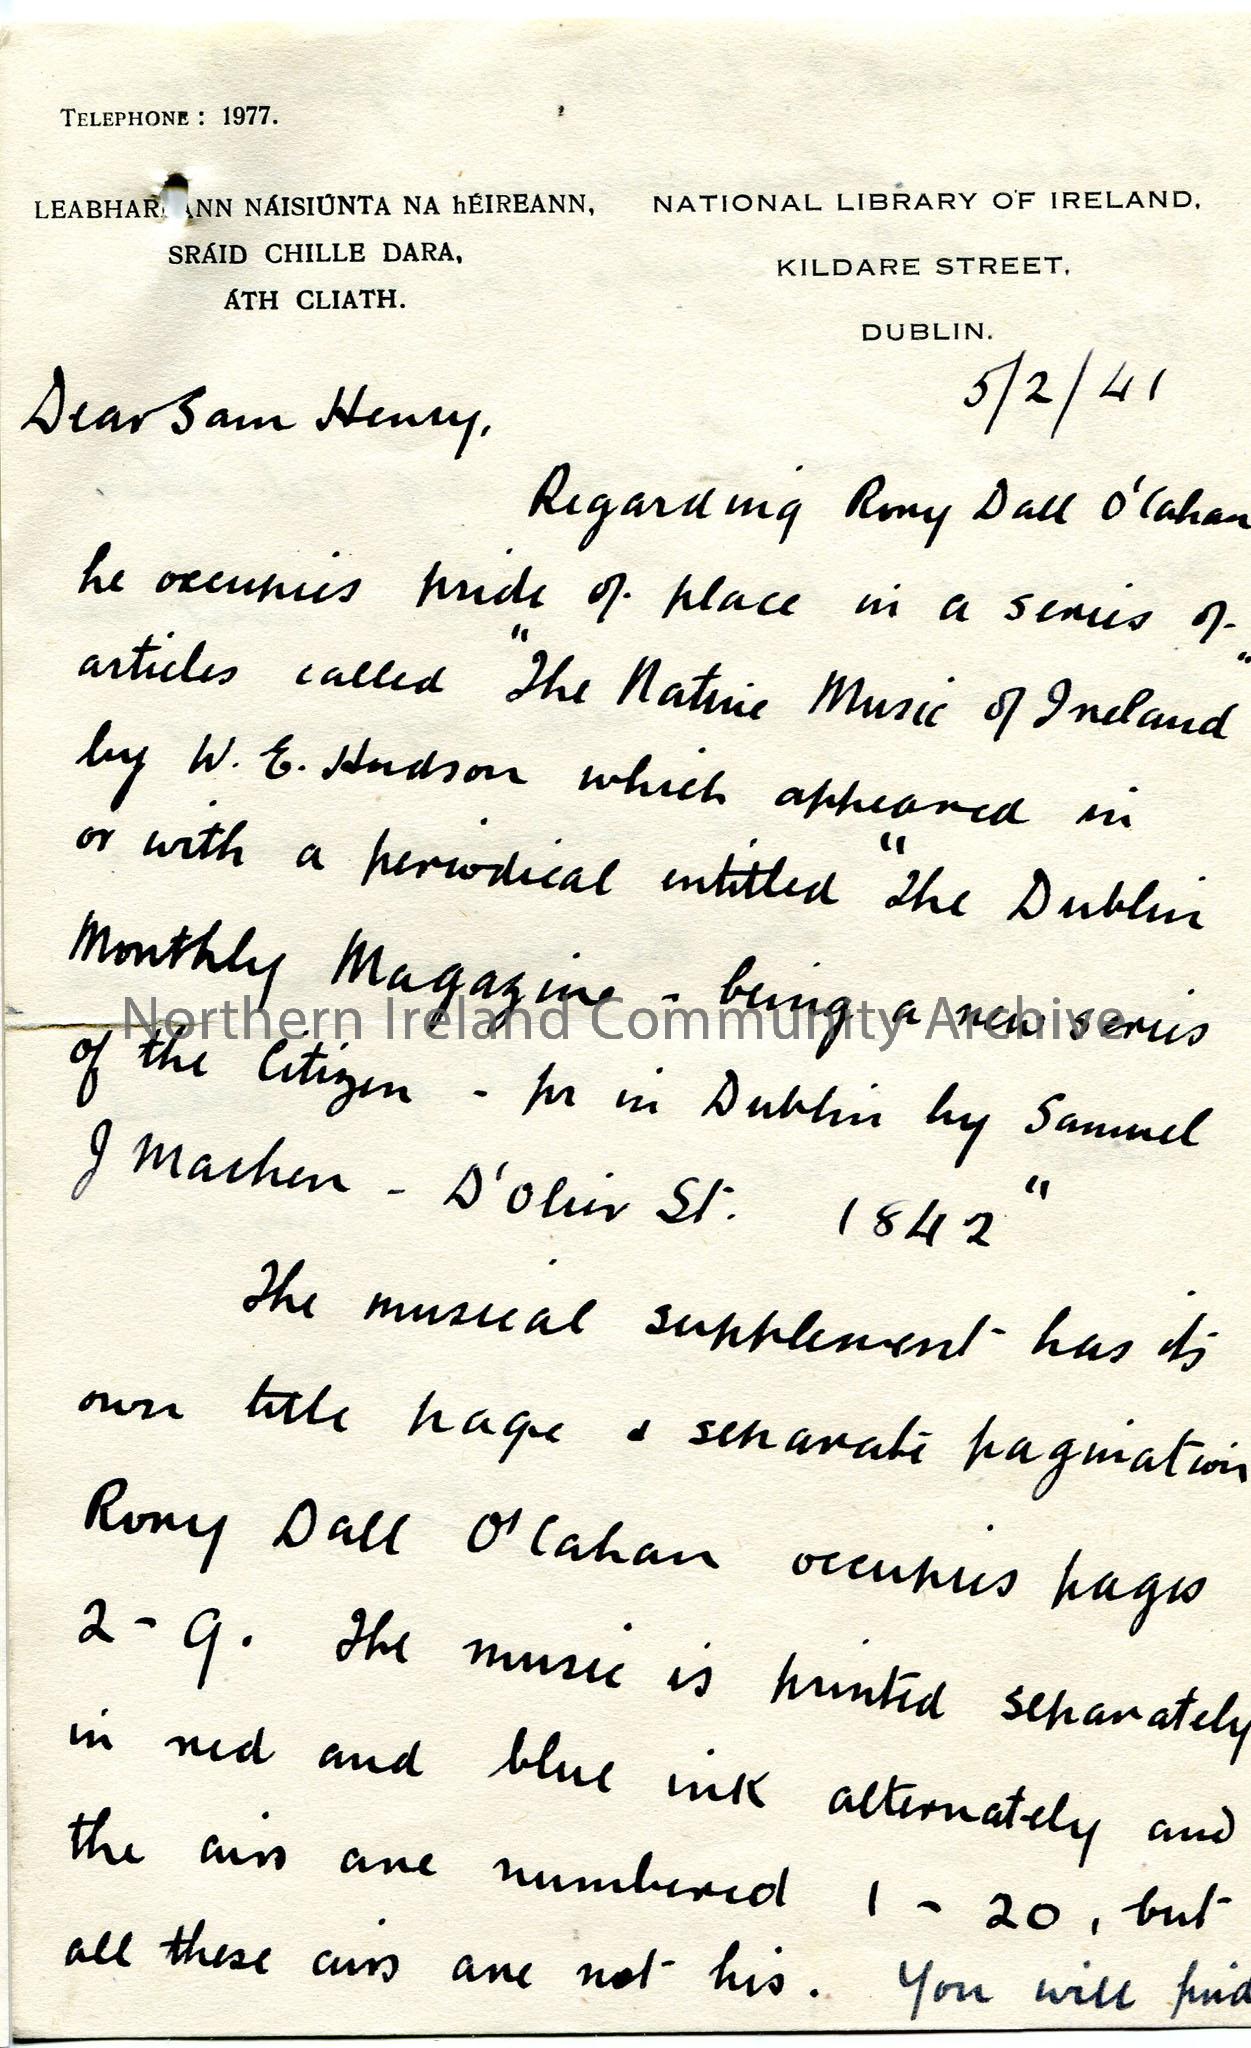 TELEPHONE: 1977.
LEABHAR ANN NÁISIÚNTA NA hÉIREANN,
SRÁID CHILLE DARA,
ÁTH CLIATH.
NATIONAL LIBRARY OF IRELAND,
KILDARE STREET,
DUBLIN.
5/2/41
Dear Sam Henry,
Regarding Rory Dall O'Cahan
he occupies pride of place in a series of
articles called "The Native Music of Ireland"
by W. E. Hudson which appeared in
or with a periodical entitled "The Dublin
Monthly Magazine - being a new series
of the Citizen - pr in Dublin by Samuel
J Machen - D'Olier St. 1842"
The musical supplement has its
own title page & separate pagination
Rory Dall O'Cahan occupies pages
2 - 9. The music is printed separately
in red and blue ink alternately and
the airs are numbered 1 - 20, but
all these airs are not his. You will find
Northern Ireland Community Archive